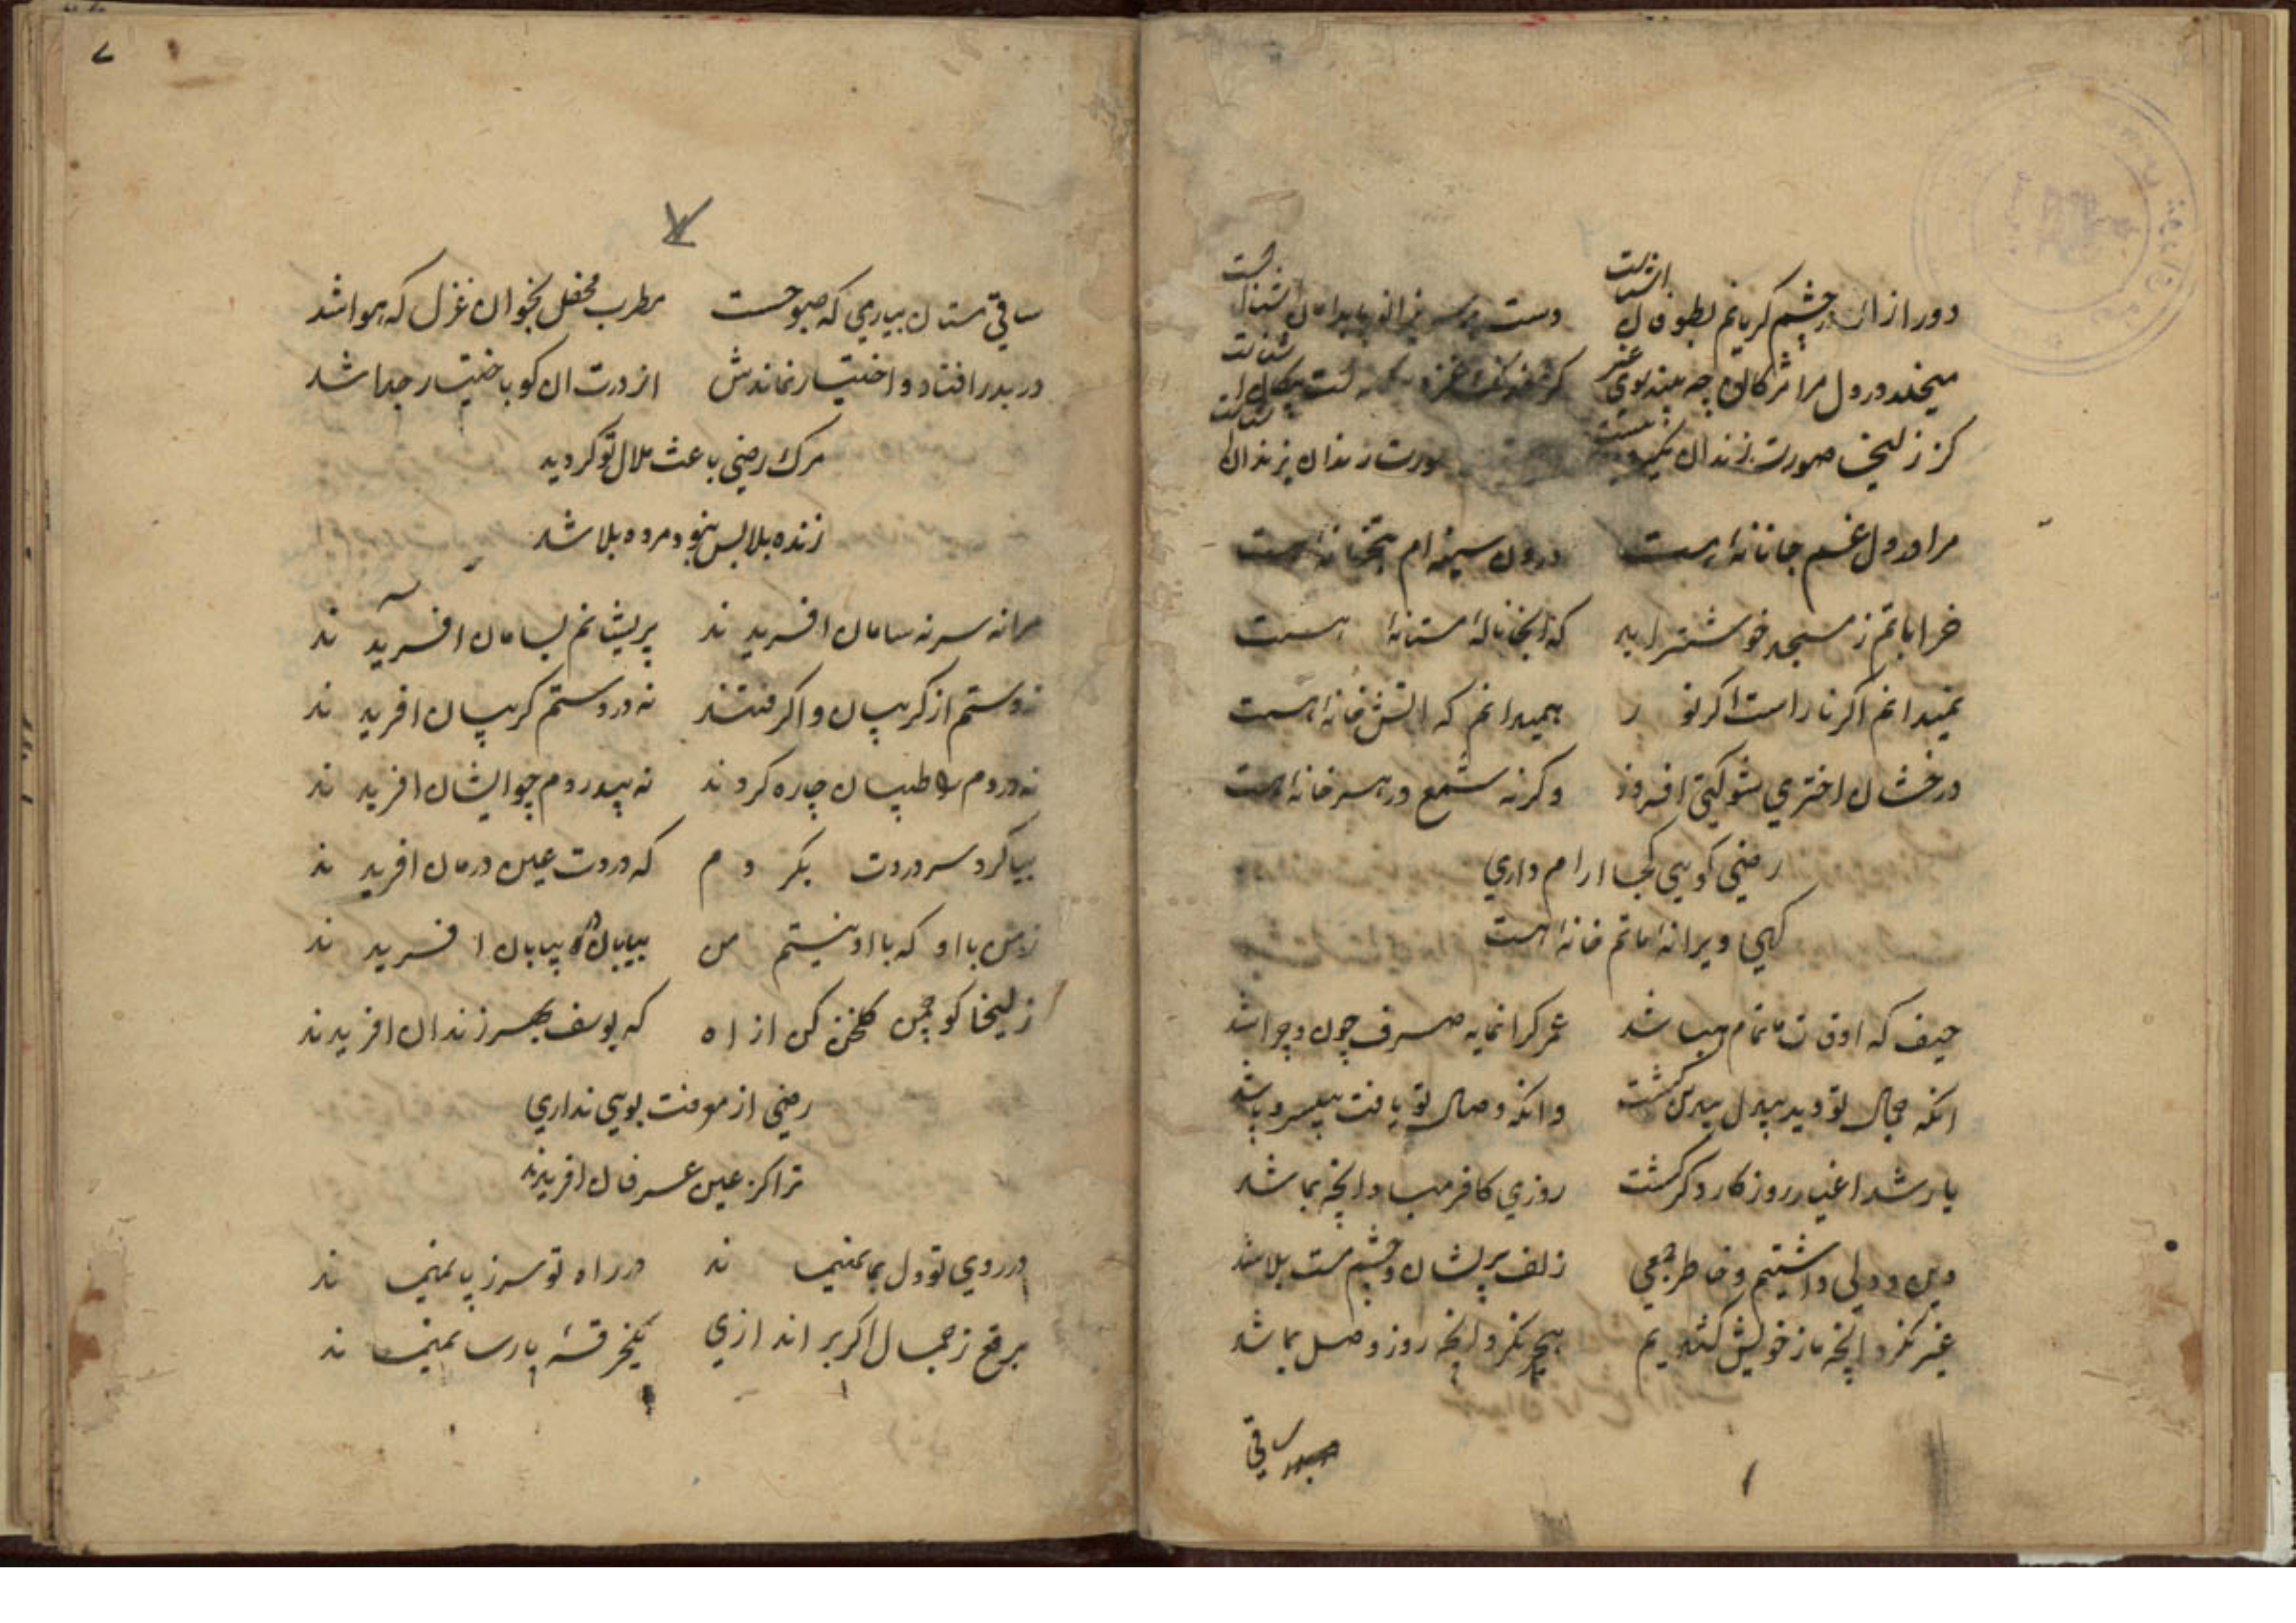 دور ازان در چشم گریانم بطوفان اشناست دست بر سر پا بدامان اشناست
میخلد در دل مرا مژگان چه بیند بوی غیر
کز زلیخا صورت زندان یکیست صورت زندان بزندان اشناست
مرا در دل غم جانانهٔ هست درون سینه ام بتخانهٔ هست
خراباتم ز مسجد خوشتر اید که انجا نالهٔ مستانهٔ هست
نمیدانم اکر نار است اکر نور همیدانم که اتش خانهٔ هست
درخشان اختری شو کیتی افروز وکرنه شمع در هر خانهٔ هست
رضی کویی کجا ارام داری
کهی ویرانه ما تم خانهٔ هست
حیف که اوقات ما تمام هبا شد عمر کرانمایه صرف چون و چرا شد
انکه جمال تو دید بیدل و بیدین کشت وانکه وصال تو یافت بیسر و پا شد
یار شد اغیار روزکار دکر کشت روزی کافر مباد انچه بما شد
دین و دلی داشتیم و خاطر جمعی زلف پریشان و چشم مست بلا شد
غیر نکرد انچه ما ز خویش کشیدیم هیچ نکرد انچه روز وصل بما شد
ساقی
۷
ساقی مستان بیار می که صبوحست مطرب محفل بخوان غزل که هوا شد
در بدر افتاد و اختیار نماندش از درت ان کو باختیار جدا شد
مرک رضی باعث ملال تو کردید
زنده بلا بس نبود مرده بلا شد
مرا نه سر نه سامان افریدند پریشانم بسامان افریدند
نه دستم از کریبان واکرفتند نه در دستم کریبان افریدند
نه دردم را طبیبان چاره کردند نه بیدردم چو ایشان افریدند
بیا کرد سر دردت بکردم که دردت عین درمان افریدند
نه من با او که با او نیستم من بیابان در بیابان افریدند
زلیخا کو چمن کلخن کن از اه که یوسف بهر زندان افریدند
رضی از معرفت بویی نداری
ترا کز عین عرفان افریدند
در روی تو دل بما نمیماند در راه تو سر ز پا نمیماند
برقع ز جمال اکر براندازی یکخرقهٔ پارسا نمیماند